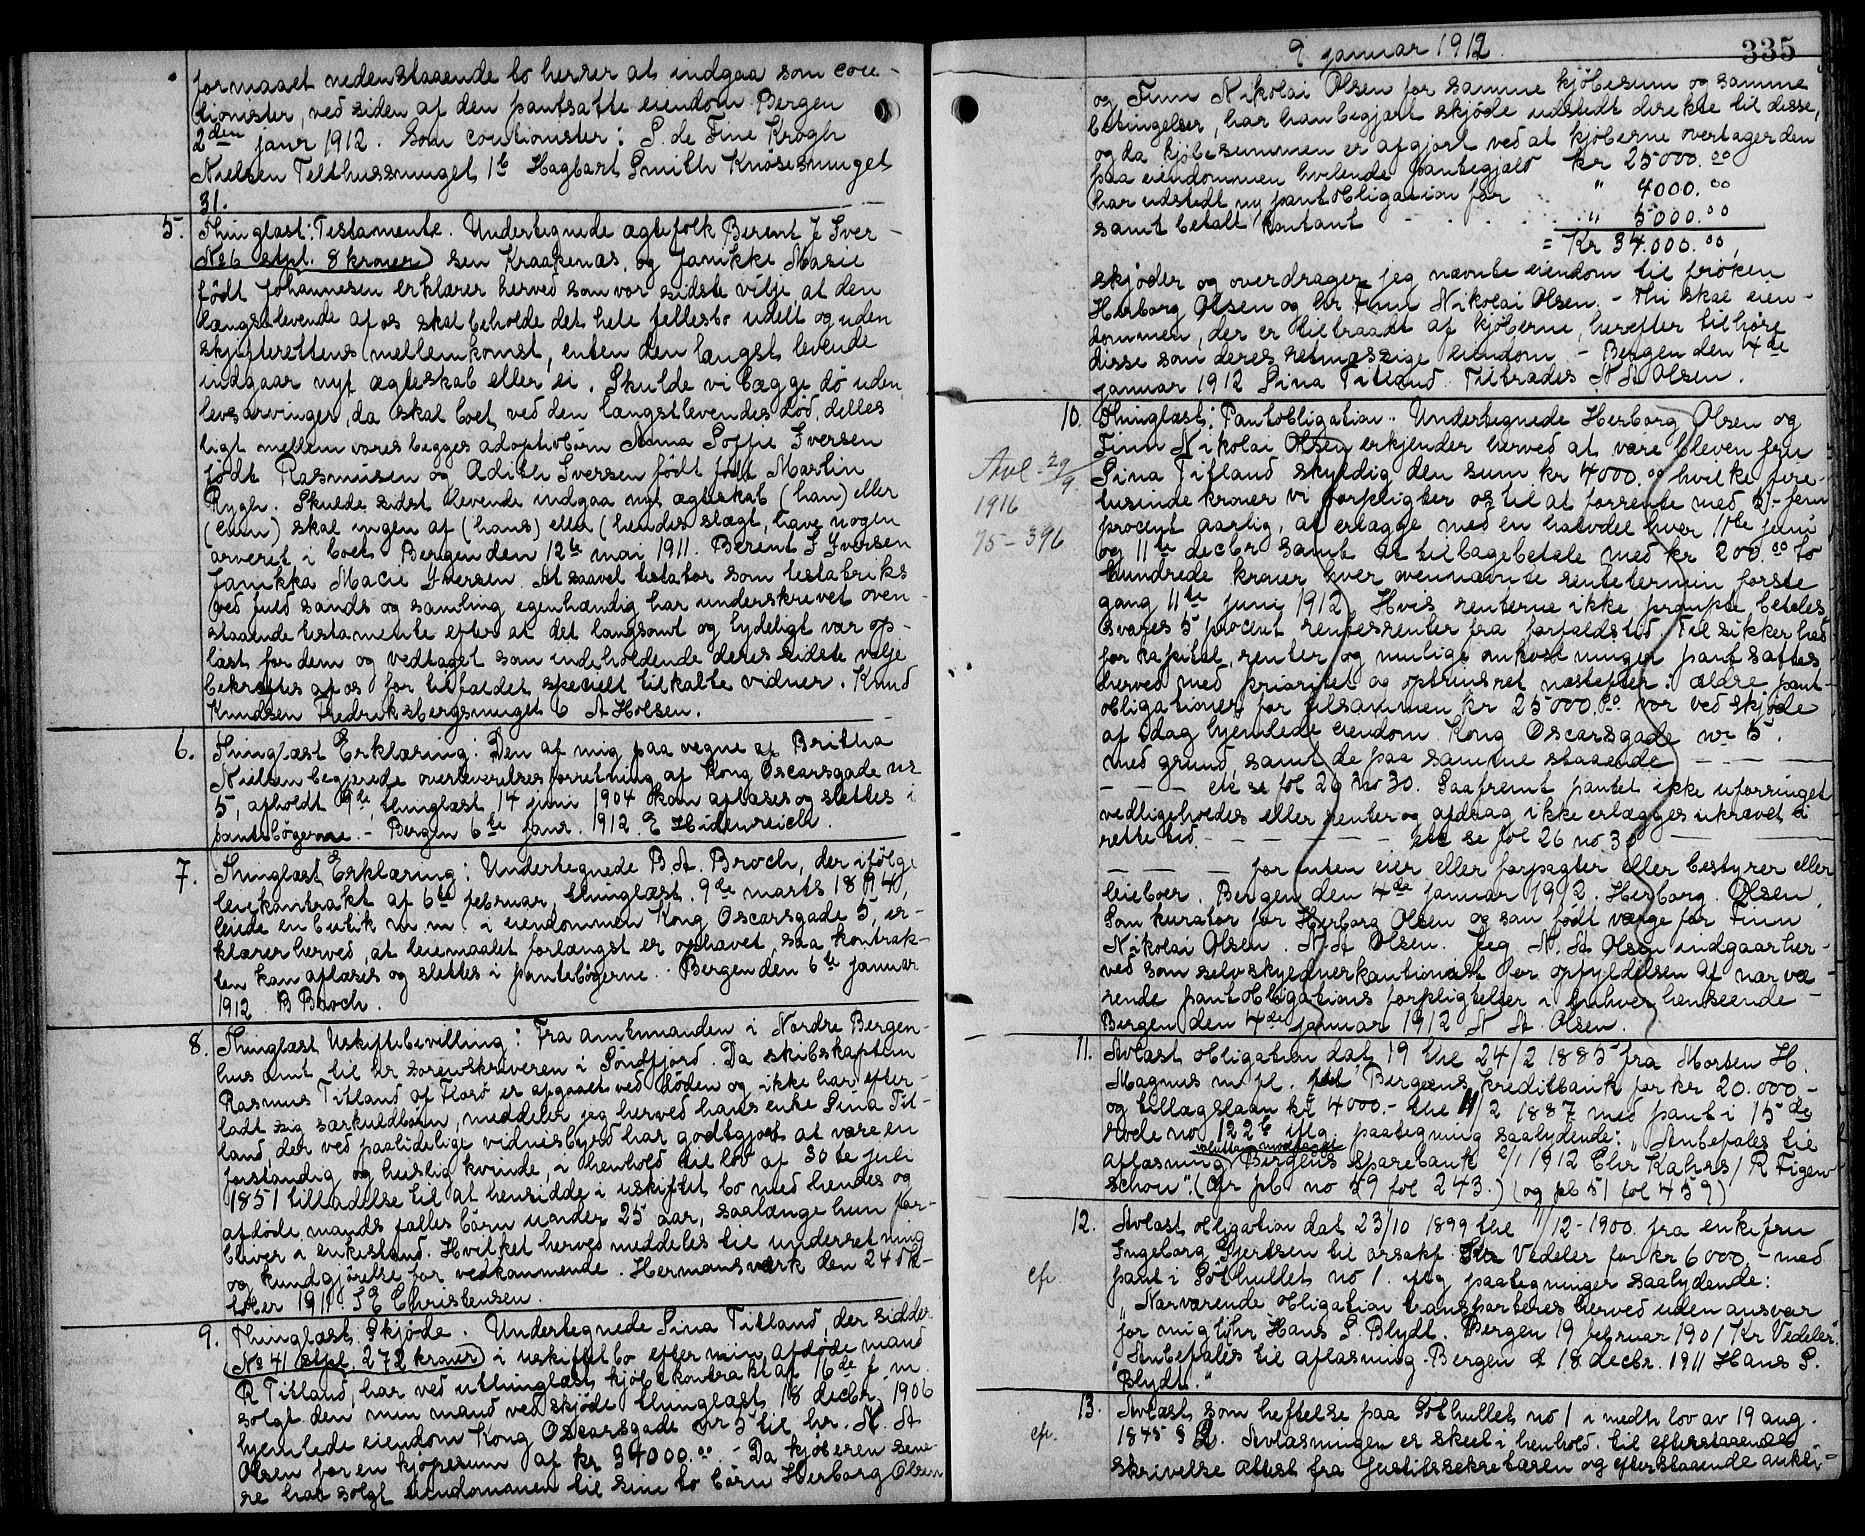 formaaet nedenstaaende to herrer at indgaa som cou-
tionister, ved siden af den pantsatte eiendom. Bergen
2den janr 1912. Som coutionister: S. de Fine Krogh
Nielsen Telthussmuget 1b Hagbart Smith Knøsesmuget
31.
5. Thinglæst: Testamente. Undertegnede ægtefolk Berent J Iver-
No 6 stpl. 8 kroner) sen Kraakenæs, og Janikke Marie
født Johannesen erklærer herved som vor sidste vilje, at den
længstlevende af os skal beholde det hele fellesbo udelt og uden
skifterettens mellemkomst, enten den længst levende
indgaar nyt ægteskab eller ei. Skulde vi begge dø uden
livsarvinger, da skal boet ved den længstlevendes død, delles
ligt mellem vores begges adoptivbørn Anna Soffie Iversen
født Rasmusen og Adith Iversen født født Martin
Rygh. Skulde sidst levende indgaa nyt ægteskab (han) eller
(hun) skal ingen af (hans) eller (hendes slægt, have nogen
arveret i boet. Bergen den 12te mai 1911. Berent J Iversen
Janikka Macie Iversen. At saavel testator som testatriks
ved fuld sands og samling egenhændig har underskrevet oven-
staaende testamente efter at det langsomt og tydeligt var op-
læst for dem og vedtaget som indeholdende deres sidste vilje
bekræftes af os for tilfældet specielt tilkalte vidner. Knud
Knudsen Fredriksbergsmuget 6 A Holsen.
6. Thinglæst Erklæring: Den af mig paa vegne af Britha
Nielsen begjærede overleverelsesforretning af Kong Oscarsgade nr
5, afholdt 9de, thinglæst 14 juni 1904 kan aflæses og slettes i
pantebøgerne. - Bergen 6te janr. 1912. E Heidenreich.
7. Thinglæst Erklæring: Undertegnede B A. Broch, der ifølge
leiekontrakt af 6te februar, thinglæst. 9de marts 1894,
leiede en butik m. m. i eiendommen Kong Oscarsgade 5, er-
klærer herved, at leiemaalet forlængst er ophævet, saa kontrak-
ten kan aflæses og slettes i pantebøgerne. Bergen den 6te januar
1912 B Broch.
8. Thinglæst Uskiftebevilling: Fra amtmanden i Nordre Bergen-
hus amt til hr sorenskriveren i Søndfjord. Da skibskaptein
Rasmus Titland af Florø er afgaaet ved døden og ikke har efter-
ladt sig særkuldbørn, meddeler jeg herved hans enke Sina Tit-
land, der ved paalidelige vidnesbyrd har godtgjort at være en
forstandig og huslig kvinde, i henhold til lov af 30te juli
1851 tilladelse til at hensidde i uskiftet bo med hendes og
afdøde mands fælles børn under 25 aar, saalænge hun for-
bliver i enkestand. Hvilket herved meddeles til underretning
og kundgjørelse for vedkommende. Hermansværk den 24 okt-
tober 1911. I E Christensen.
9. Thinglæst. Skjøde. Undertegnede Sina Titland, der sidder
(No 41 stpl. 272 kroner) i uskiftet bo efter min afdøde mand
R Titland, har ved uthinglæst kjøbekontrakt af 16de f m.
solgt den min mand ved skjøde thinglæst 18 decbr 1906
hjemlede eiendom Kong Oscarsgade nr 5 til hr. N. A.
Olsen for en kjøpesum af kr 34000.00. - Da kjøberen sene-
re har solgt eiendommen til sine to børn Herborg Olsen
9 januar 1912. 335
og Finn Nikolai Olsen for samme kjøbesum og samme
betingelser, har han begjært skjøde udstedt direkte til disse,
og da kjøbesummen er afgjort ved at kjøberne overtager den
paa eiendommen hvilende pantegjæld kr 25000.00
har udstedt ny pantobligation for " 4000.00
samt betalt kontant " 5000.00
= Kr 34.000.00,
skjøder og overdrager jeg nævnte eiendom til frøken
Herborg Olsen og hr Finn Nikolai Olsen. - Thi skal eien-
dommen, der er tiltraadt af kjøberne, herefter tilhøre
disse som deres retmæssige eiendom - Bergen den 4de
januar 1912 Sina Titland. Tiltrædes N A Olsen.
10. Thinglæst: Pantobligation. Undertegnede Herborg Olsen og
Finn Nikolai Olsen erkjender herved at være bleven fru
Avl 29/9
1916
75-396
Sina Titland skyldig den sum kr 4000.00 hvilke fire-
tusinde kroner vi forpligter os til at forrente med 5- fem
procent aarlig, at erlægge med en halvdel hver 11te juni
og 11te decbr samt at tilbagebetale med kr 200.00 to
hundrede kroner hver ovennævnte rentetermin første
gang 11te juni 1912. Hvis renterne ikke prompte betales
svares 5 procent rentesrenter fra forfaldstid. Til sikkerhed
for kapital, renter og mulige omkostninger pantsættes
herved med prioritet og optrinsret næstefter ældre pant-
obligationer for tilsammen kr 25000.00 vor ved skjøde
af idag hjemlede eiendom Kong Oscarsgade nr 5.
med grund, samt de paa samme staaende - - - -
- - - etc se fol 26 no 30. Saafremt pantet ikke uforringet
vedligeholdes eller renter og afdrag ikke erlægges ukrævet i
rette tid. - - - - etc se fol 26 no 30 - - -
- - - - for enten eier eller forpagter eller bestyrer eller
leieboer. Bergen den 4de januar 1912. Herborg Olsen
Som kurator for Herborg Olsen og som født værge for Finn
Nikolai Olsen. N. A Olsen. Jeg N. A Olsen indgaar her-
ved som selvskyldnerkautionist for opfyldelsen af nærvæ-
rende pantobligations forpligtelser i enhver henseende -
Bergen den 4de januar 1912 N A. Olsen.
11. Avlæst obligation dat. 19 thl 24/2 1885 fra Morten H.
Magnus m fl. til Bergens Kreditbank for kr 20.000 -
og tillægslaan kr 4000.- thl 11/2 1887 med pant i 15de
rode no 122 b iflg. paategning saalydende: "Anbefales til
valuten modtaget
aflæsning. Bergens Sparebank 2/1 1912 Chr Kahrs / R Figen-
schou". (Cfr pb no 49 fol 243.) (og pb 51 fol 459)
12. Avlæst obligation dat 23/10 1899 thl 11/12-1900. fra enkefru
Ingeborg Gjertsen til orsakf. Kr Vedeler for kr 6000.- med
cfr. pant i Pøthullet no 1. iflg paategninger saalydende:
"Nærværende obligation transporteres herved uden ansvar
for mig til hr Hans S. Blydt. Bergen 19 februar 1901 Kr Vedeler".
"Anbefales til aflæsning. Bergen d 18 decbr. 1911 Hans S.
Blydt."
13. Avlæst som heftelse paa Pøthullet no 1 i medh lov av 19 aug.
cfr. 1845 § 2. Avlæsningen er skeet i henhold til efterstaaende
skrivelse attest fra Justitssekretæren og efterstaaende